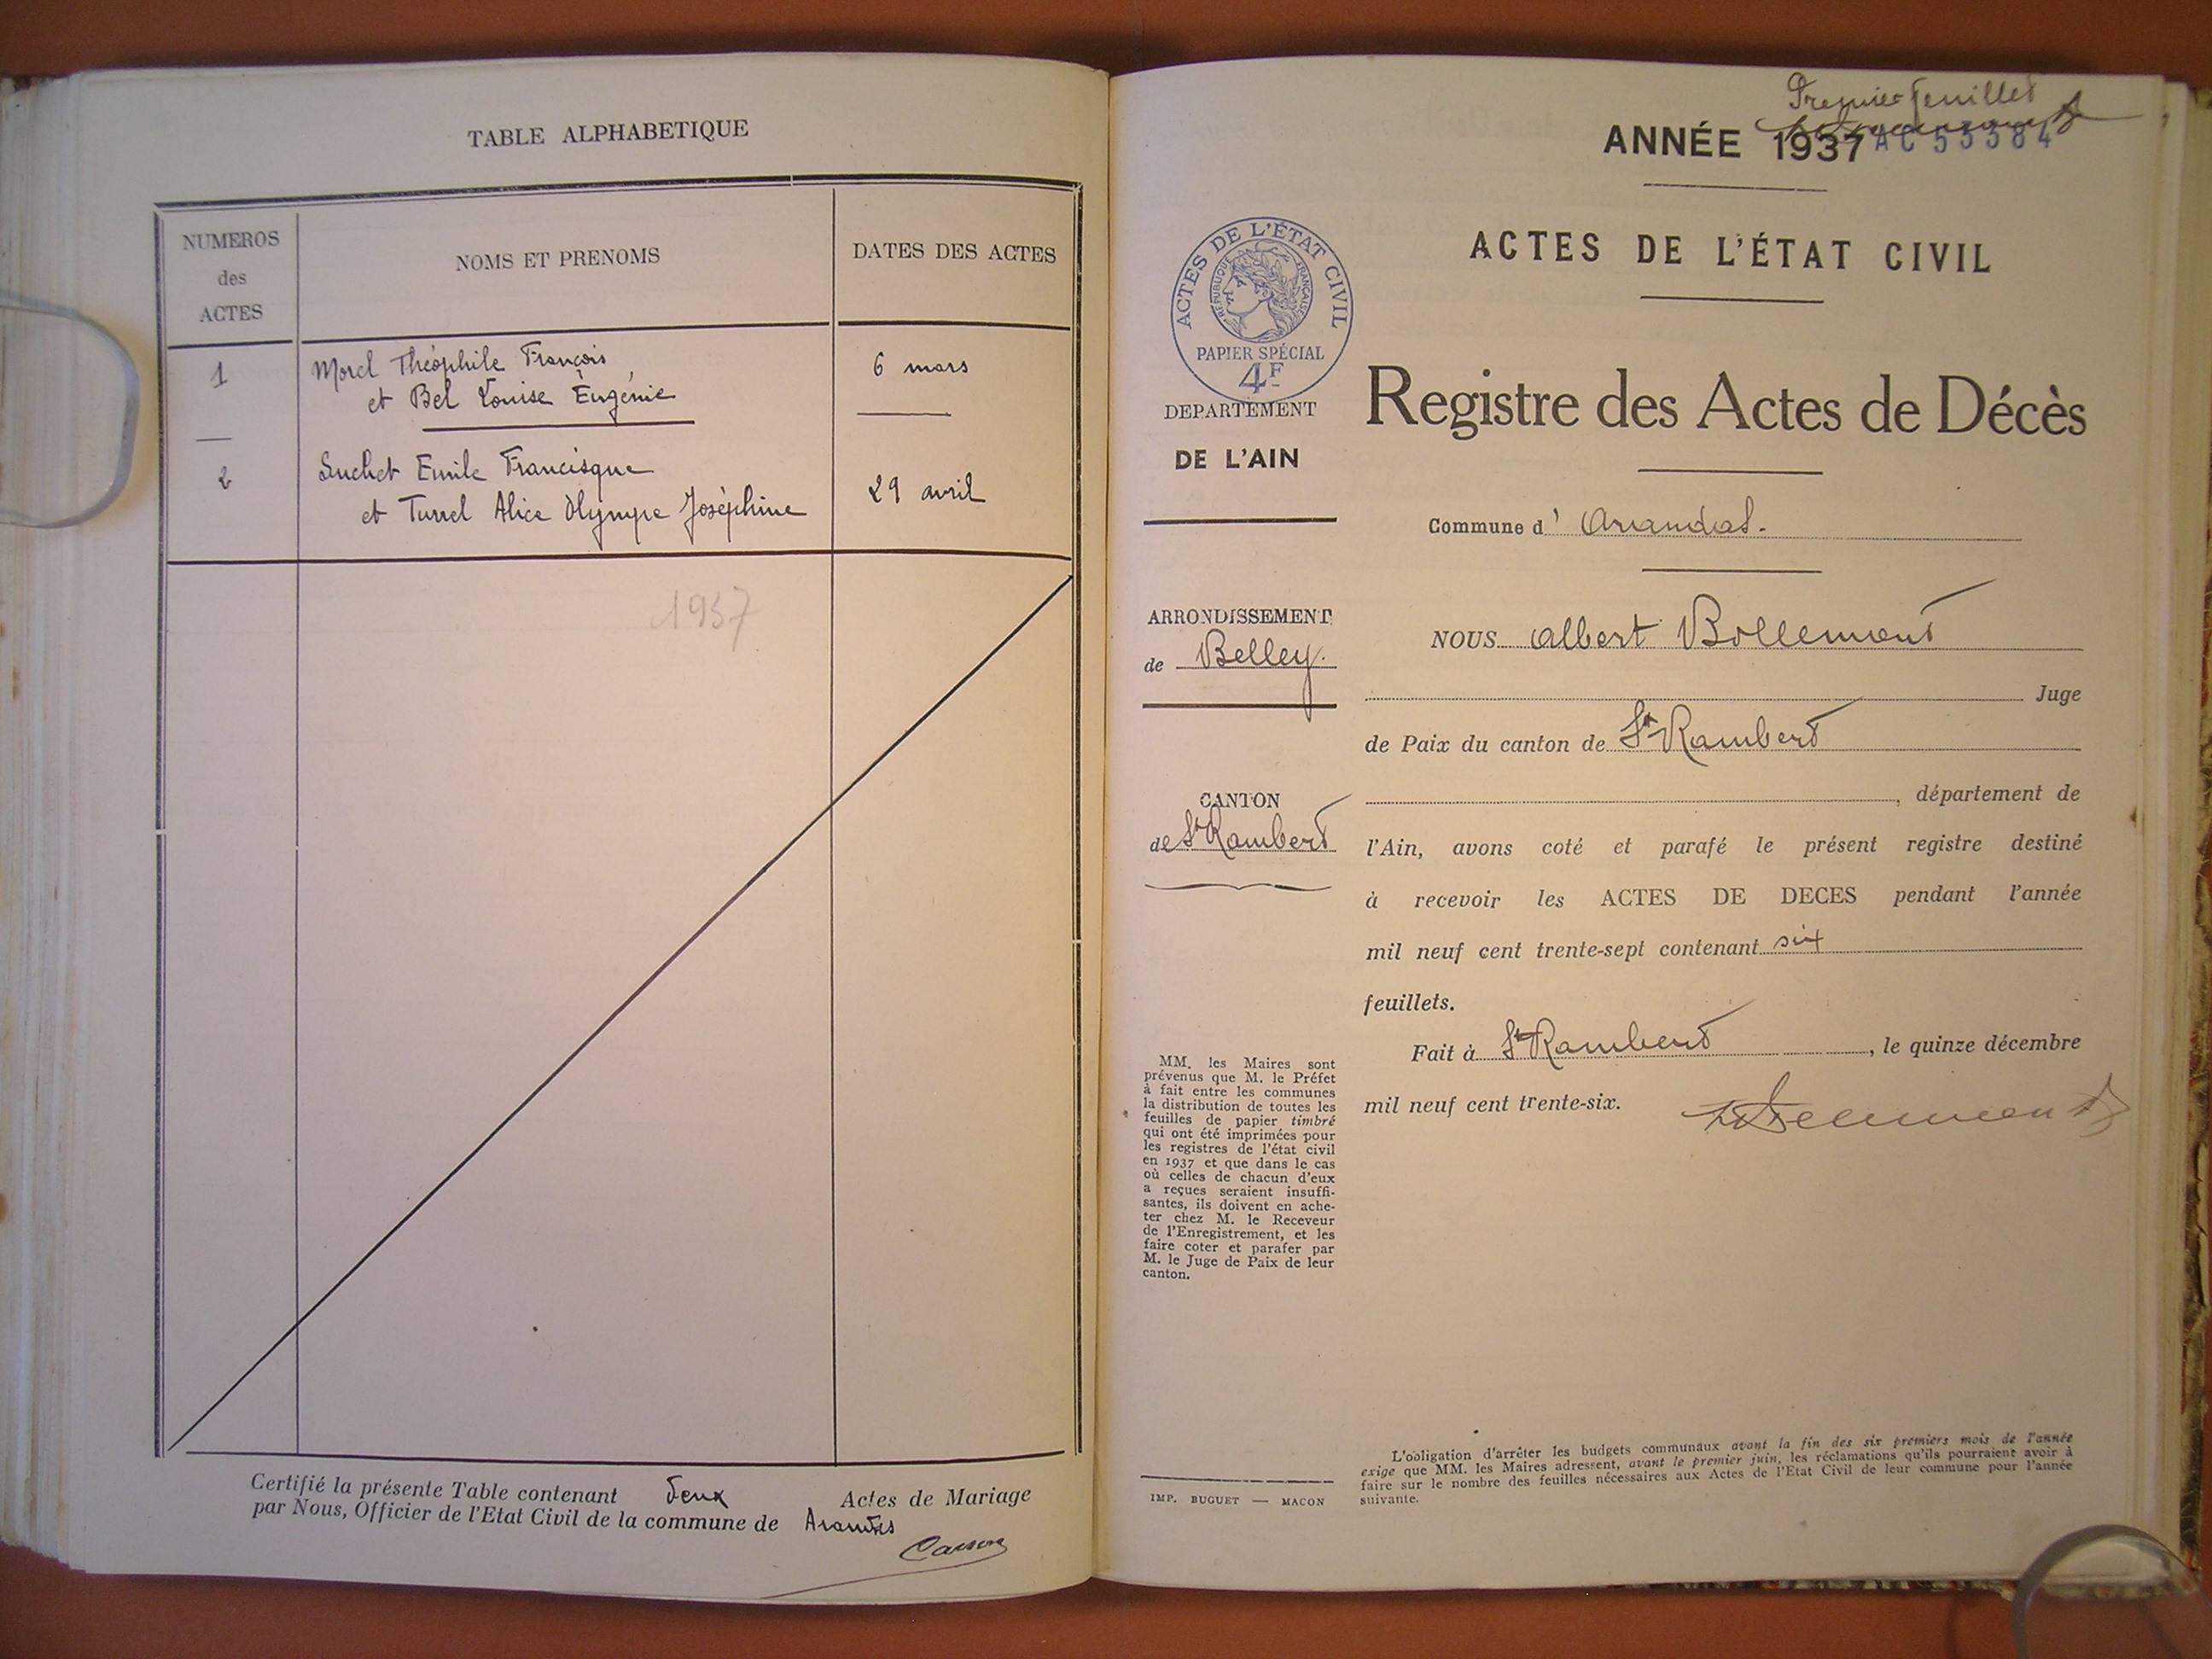 TABLE ALPHABETIQUE
NUMEROS
des
ACTES
NOMS ET PRENOMS
DATES DES ACTES
1
Morel Théophile François
et Bel Louise Eugénie
6 mars
2
Suchet Emile Francisque
et Turrel Alice Olympe Joséphine
29 avril
1937
Certifié la présente Table contenant deux Actes de Mariage
par Nous, Officier de l'Etat Civil de la commune de Arandas
Premier feuillet
ANNÉE 1937
ACTES DE L'ÉTAT CIVIL
ACTES DE L'ÉTAT CIVIL
RÉPUBLIQUE FRANÇAISE
PAPIER SPÉCIAL
4F
DEPARTEMENT
DE L'AIN
Registre des Actes de Décès
Commune d' Arandas.
ARRONDISSEMENT
de Belley.
CANTON
de St Rambert
NOUS Albert Bollemont
Juge
de Paix du canton de St Rambert
, département de
l'Ain, avons coté et parafé le présent registre destiné
à recevoir les ACTES DE DECES pendant l'année
mil neuf cent trente-sept contenant six
feuillets.
Fait à St Rambert, le quinze décembre
mil neuf cent trente-six.
MM. les Maires sont
prévenus que M. le Préfet
à fait entre les communes
la distribution de toutes les
feuilles de papier timbré
qui ont été imprimées pour
les registres de l'état civil
en 1937 et que dans le cas
où celles de chacun d'eux
a reçues seraient insuffi-
santes, ils doivent en ache-
ter chez M. le Receveur
de l'Enregistrement, et les
faire coter et parafer par
M. le Juge de Paix de leur
canton.
IMP. BUGUET — MACON
L'obligation d'arrêter les budgets communaux avant la fin des six premiers mois de l'année
exige que MM. les Maires adressent, avant le premier juin, les réclamations qu'ils pourraient avoir à
faire sur le nombre des feuilles nécessaires aux Actes de l'Etat Civil de leur commune pour l'année
suivante.